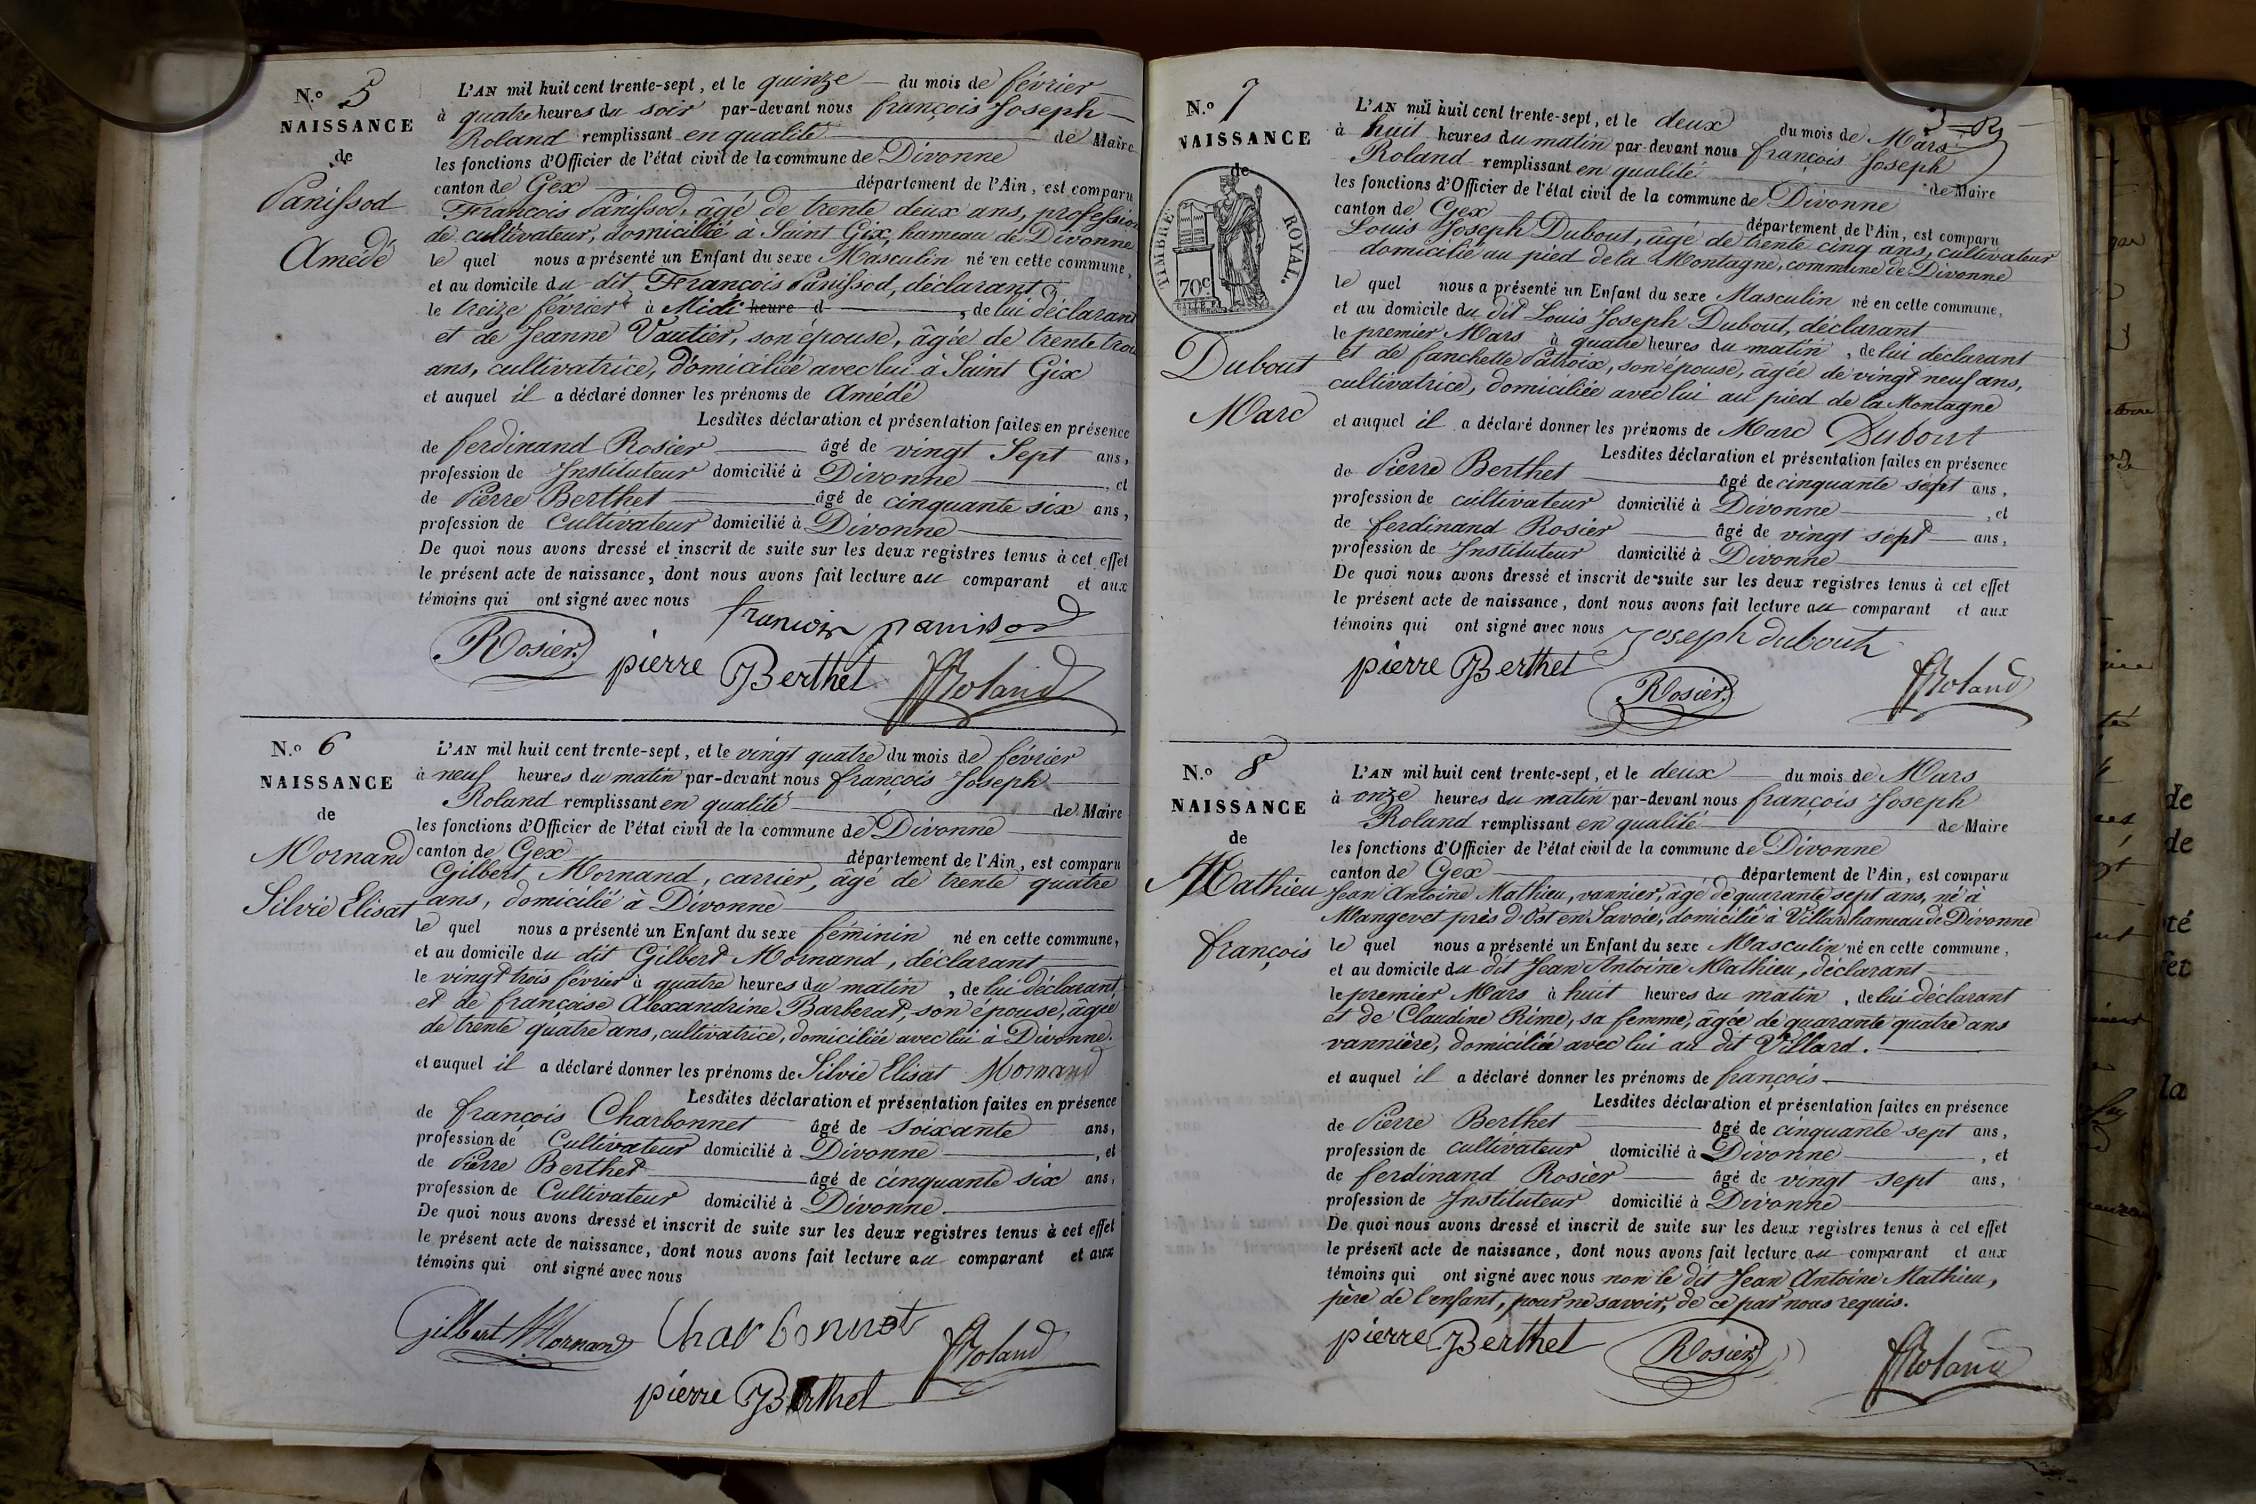 N.º 5
NAISSANCE
de
Panissod
Amédé
L'AN mil huit cent trente-sept, et le quinze du mois de février
à quatre heures du soir par-devant nous françois Joseph
Roland remplissant en qualité de Maire
les fonctions d'Officier de l'état civil de la commune de Divonne
canton de Gex département de l'Ain, est comparu
François Panissod, âgé de trente deux ans, profession
de cultivateur, domicilié a Saint Gix, hameau de Divonne
le quel nous a présenté un Enfant du sexe Masculin né en cette commune,
et au domicile du dit François Panissod, déclarant
le treize février à Midi heure d , de lui déclarant
et de Jeanne Vautier, son épouse, âgée de trente trois
ans, cultivatrice, domiciliée avec lui à Saint Gix
et auquel il a déclaré donner les prénoms de Amédé
Lesdites déclaration et présentation faites en présence
de ferdinand Rosier âgé de vingt Sept ans,
profession de Instituteur domicilié à Divonne , et
de Pierre Berthet âgé de cinquante six ans,
profession de Cultivateur domicilié à Divonne
De quoi nous avons dressé et inscrit de suite sur les deux registres tenus à cet effet
le présent acte de naissance, dont nous avons fait lecture au comparant et aux
témoins qui ont signé avec nous
françois panissod
Rosier pierre Berthet JRoland
N.º 6
NAISSANCE
de
Mornand
Silvie Elisat
L'AN mil huit cent trente-sept, et le vingt quatre du mois de février
à neuf heures du matin par-devant nous françois Joseph
Roland remplissant en qualité de Maire
les fonctions d'Officier de l'état civil de la commune de Divonne
canton de Gex département de l'Ain, est comparu
Gilbert Mornand, carrier, âgé de trente quatre
ans, domicilié à Divonne
le quel nous a présenté un Enfant du sexe féminin né en cette commune,
et au domicile du dit Gilbert Mornand, déclarant
le vingt trois février à quatre heures du matin, de lui déclarant
et de françoise Alexandrine Barberat, son épouse, âgée
de trente quatre ans, cultivatrice, domiciliée avec lui à Divonne.
et auquel il a déclaré donner les prénoms de Silvie Elisat Mornand
Lesdites déclaration et présentation faites en présence
de françois Charbonnet âgé de soixante ans,
profession de Cultivateur domicilié à Divonne , et
de Pierre Berthet âgé de cinquante six ans,
profession de Cultivateur domicilié à Divonne.
De quoi nous avons dressé et inscrit de suite sur les deux registres tenus à cet effet
le présent acte de naissance, dont nous avons fait lecture au comparant et aux
témoins qui ont signé avec nous
Gilbert Mornand Charbonnet JRoland
pierre Berthet
N.º 7
NAISSANCE
de
TIMBRE ROYAL.
70c
Dubout
Marc
L'AN mil huit cent trente-sept, et le deux du mois de Mars
à huit heures du matin par-devant nous françois Joseph
Roland remplissant en qualité de Maire
les fonctions d'Officier de l'état civil de la commune de Divonne
canton de Gex département de l'Ain, est comparu
Louis Joseph Dubout, âgé de trente cinq ans, cultivateur
domicilié au pied de la Montagne, commune de Divonne
le quel nous a présenté un Enfant du sexe Masculin né en cette commune,
et au domicile du dit Louis Joseph Dubout, déclarant
le premier Mars à quatre heures du matin, de lui déclarant
et de fanchette Patroix, son épouse, âgée de vingt neuf ans,
cultivatrice, domiciliée avec lui au pied de la Montagne
et auquel il a déclaré donner les prénoms de Marc Dubout
Lesdites déclaration et présentation faites en présence
de Pierre Berthet âgé de cinquante sept ans,
profession de cultivateur domicilié à Divonne , et
de ferdinand Rosier âgé de vingt sept ans,
profession de Instituteur domicilié à Divonne
De quoi nous avons dressé et inscrit de suite sur les deux registres tenus à cet effet
le présent acte de naissance, dont nous avons fait lecture au comparant et aux
témoins qui ont signé avec nous
Joseph dubout
pierre Berthet Rosier JRoland
N.º 8
NAISSANCE
de
Mathieu
françois
L'AN mil huit cent trente-sept, et le deux du mois de Mars
à onze heures du matin par-devant nous françois Joseph
Roland remplissant en qualité de Maire
les fonctions d'Officier de l'état civil de la commune de Divonne
canton de Gex département de l'Ain, est comparu
Jean Antoine Mathieu, vannier, âgé de quarante sept ans, né à
Mangevet près d'Ost en Savoie, domicilié à Villard hameau de Divonne
le quel nous a présenté un Enfant du sexe Masculin né en cette commune,
et au domicile du dit Jean Antoine Mathieu, déclarant
le premier Mars à huit heures du matin, de lui déclarant
et de Claudine Rime, sa femme, âgée de quarante quatre ans
vannière, domiciliée avec lui au dit Villard.
et auquel il a déclaré donner les prénoms de françois
Lesdites déclaration et présentation faites en présence
de Pierre Berthet âgé de cinquante sept ans,
profession de cultivateur domicilié à Divonne , et
de ferdinand Rosier âgé de vingt sept ans,
profession de Instituteur domicilié à Divonne
De quoi nous avons dressé et inscrit de suite sur les deux registres tenus à cet effet
le présent acte de naissance, dont nous avons fait lecture au comparant et aux
témoins qui ont signé avec nous non le dit Jean Antoine Mathieu,
père de l'enfant, pour ne savoir, de ce par nous requis.
pierre Berthet Rosier JRoland